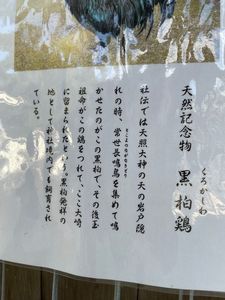 天然記念物 黒柏鶏
くろかしわ
社伝では天照大神の天の岩戸隠
れの時、常世長鳴鳥を集めて鳴
とこよのながなきどり
かせたのがこの黒柏で、その後玉
祖命がこの鶏をつれて、ここ大崎
に留まられたという。黒柏発祥の
地として神社境内でも飼育され
ている。